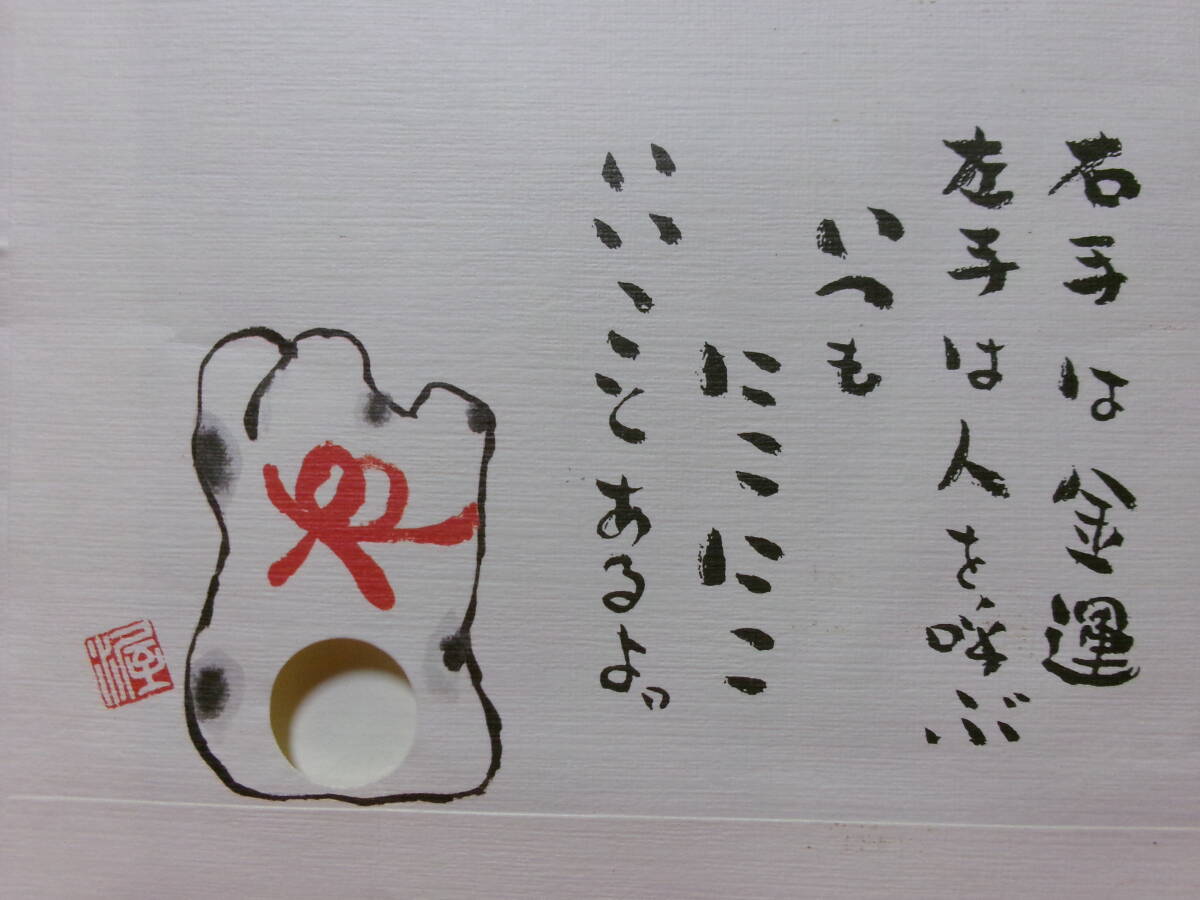 右手は金運
左手は人を呼ぶ
いつも
にこにこ
いいことあるよ。